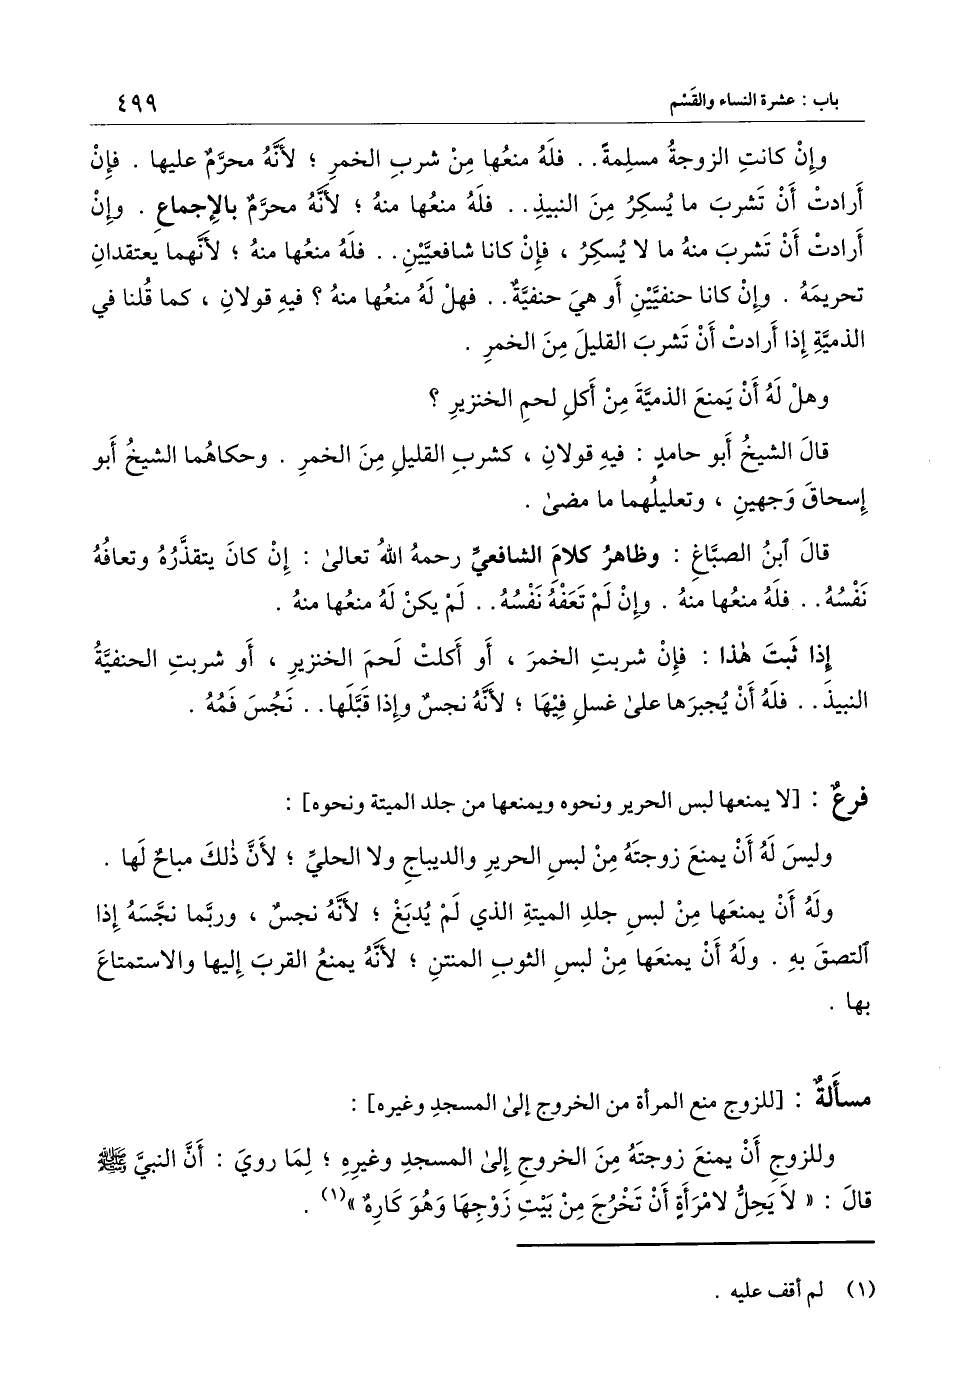 باب : عشرة النساء والقَسْم ٤٩٩
وإنْ كانتِ الزوجةُ مسلِمةً . . فلَهُ منعُها مِنْ شربِ الخمرِ ؛ لأَنَّهُ محرَّمٌ عليها . فإِنْ
أَرادتْ أَنْ تَشربَ ما يُسكِرُ مِنَ النبيذِ . . فلَهُ منعُها منهُ ؛ لأَنَّهُ محرَّمٌ بالإِجماعِ . وإِنْ
أَرادتْ أَنْ تَشربَ منهُ ما لا يُسكِرُ ، فإِنْ كانا شافعيَّيْنِ . . فلَهُ منعُها منهُ ؛ لأَنَّهما يعتقدانِ
تحريمَهُ . وإِنْ كانا حنفيَّيْنِ أَو هيَ حنفيَّةٌ . . فهلْ لَهُ منعُها منهُ ؟ فيهِ قولانِ ، كما قُلنا في
الذميَّةِ إِذا أَرادتْ أَنْ تَشربَ القليلَ مِنَ الخمرِ .
وهلْ لَهُ أَنْ يَمنعَ الذميَّةَ مِنْ أَكلِ لحمِ الخنزيرِ ؟
قالَ الشيخُ أَبو حامدٍ : فيهِ قولانِ ، كشربِ القليلِ مِنَ الخمرِ . وحكاهُما الشيخُ أَبو
إِسحاقَ وَجهينِ ، وتعليلُهما ما مضىٰ .
قالَ ٱبنُ الصبَّاغِ : وظاهرُ كلامَ الشافعيِّ رحمهُ اللهُ تعالىٰ : إِنْ كانَ يتقذَّرُهُ وتعافُهُ
نَفْسُهُ . . فلهُ منعُها منهُ . وإِنْ لَمْ تَعَفْهُ نَفْسُهُ . . لَمْ يكنْ لَهُ منعُها منهُ .
إِذا ثَبتَ هٰذا : فإِنْ شربتِ الخمرَ ، أَو أَكلتْ لَحمَ الخنزيرِ ، أَو شربتِ الحنفيَّةُ
النبيذَ . . فلَهُ أَنْ يُجبرَها علىٰ غسلِ فِيْهَا ؛ لأَنَّهُ نجسٌ وإِذا قَبَّلَها . . نَجُسَ فَمُهُ .
فرعٌ : [لا يمنعها لبس الحرير ونحوه ويمنعها من جلد الميتة ونحوه] :
وليسَ لَهُ أَنْ يمنعَ زوجتَهُ مِنْ لبسِ الحريرِ والديباجِ ولا الحليِّ ؛ لأَنَّ ذٰلكَ مباحٌ لَها .
ولَهُ أَنْ يمنعَها مِنْ لبسِ جلدِ الميتةِ الذي لَمْ يُدبَغْ ؛ لأَنَّهُ نجسٌ ، وربَّما نجَّسَهُ إِذا
ٱلتصقَ بهِ . ولَهُ أَنْ يمنعَها مِنْ لبسِ الثوبِ المنتنِ ؛ لأَنَّهُ يمنعُ القربَ إِليها والاستمتاعَ
بها .
مسأَلةٌ : [للزوج منع المرأة من الخروج إلىٰ المسجدِ وغيره] :
وللزوجِ أَنْ يمنعَ زوجتَهُ مِنَ الخروجِ إِلىٰ المسجدِ وغيرِهِ ؛ لِمَا رويَ : أَنَّ النبيَّ ﷺ
قالَ : « لاَ يَحِلُّ لامْرَأَةٍ أَنْ تَخْرُجَ مِنْ بَيْتِ زَوْجِهَا وَهُوَ كَارِهٌ »(١) .
(١) لم أقف عليه .